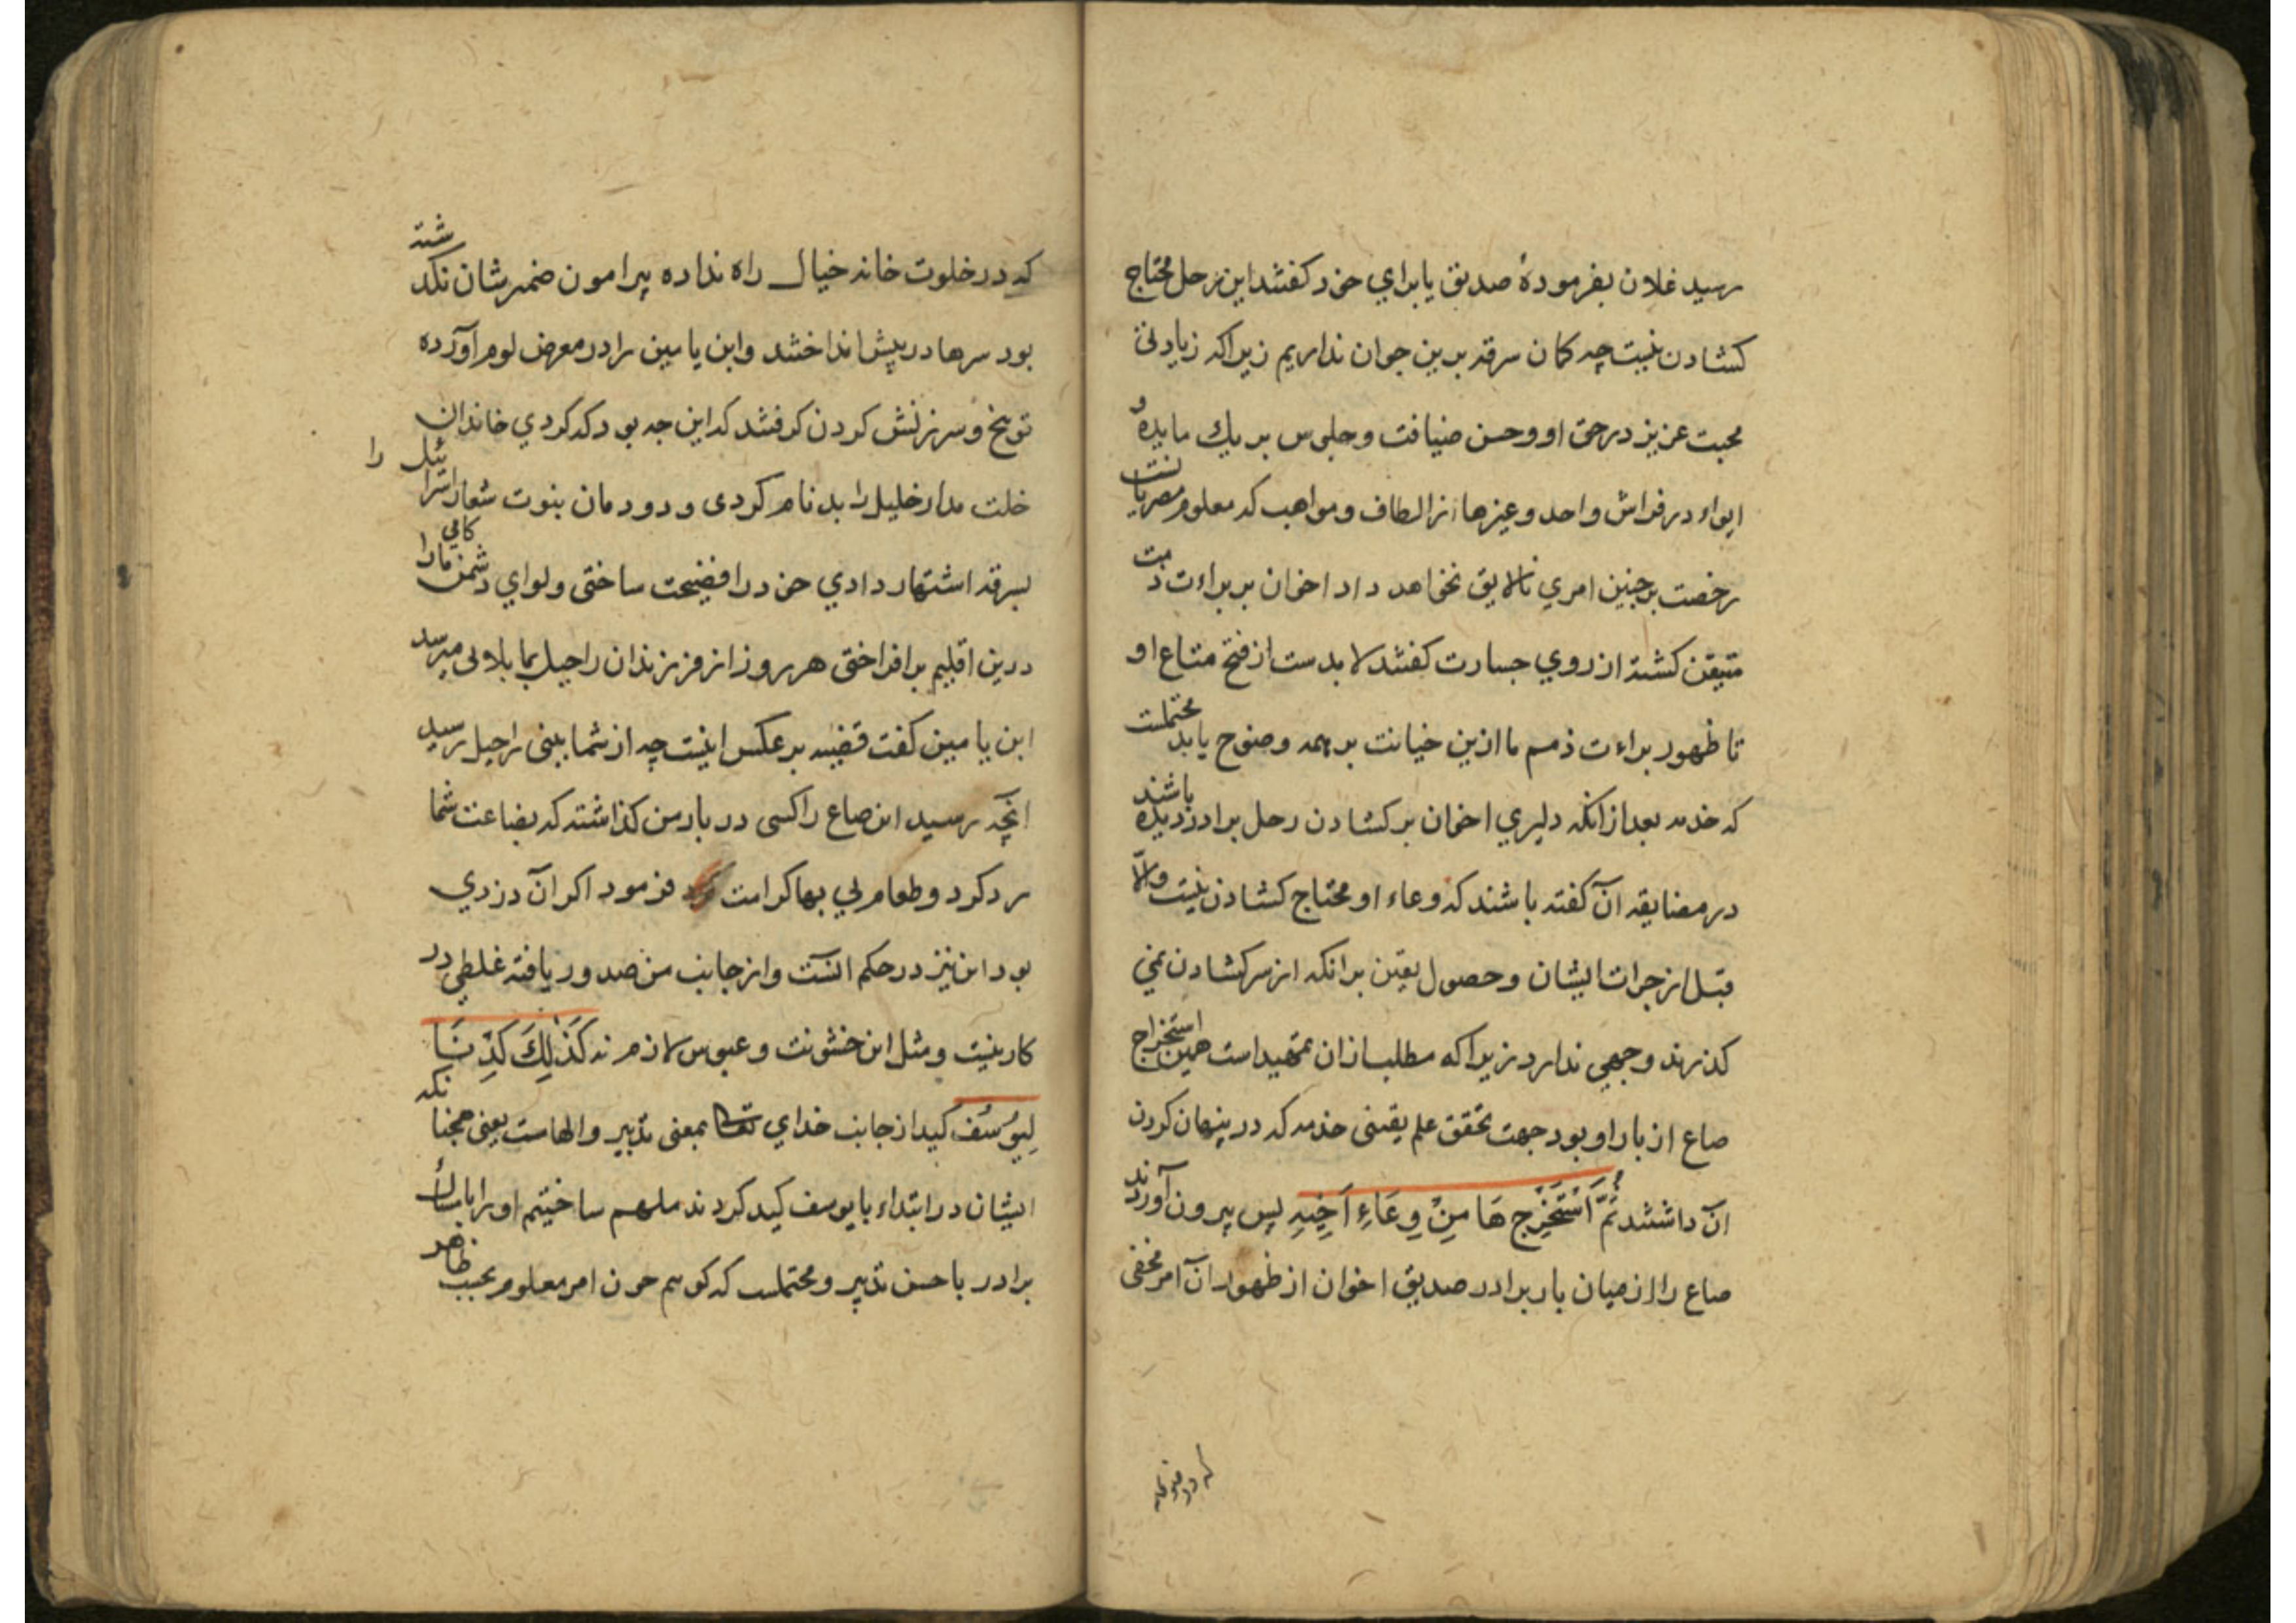 رسید غلان بفرمودهٔ صدیق یا برای خود کفتند این رحل محتاج
کشادن نیست چه کمان سرقه برین جوان نداریم زیراکه زیادتی
محبت عزیز در حق او و حسن ضیافت و جلوس بر یك مایدهٔ و
ایواء در فراش واحد و غیرها از الطاف و مواهب که معلوم مصریانست
رخصت بر چنین امری نالایق نخواهد داد اخوان بر براءت ذمت
متیقن کشته از روی جسارت کفتند لا بدست از فتح متاع او
تا ظهور براءت ذمم ما ازین خیانت بر همه وضوح یابد محتملست
که خدمه بعد ازانکه دلیری اخوان بر کشادن رحل برادر دیده باشند
در مضایقه آن کفته باشند که وعاء او محتاج کشادن نیست والّا
قبل از جرات ایشان و حصول یقین برانکه از سر کشادن نمی
کذرند وجهی ندارد زیراکه مطلب ازان تمهیدات همین استخراج
صاع از بار او بود جهت تحقق علم یقینی خدمه که در پنهان کردن
آن داشتند ثُمَّ اَسْتَخْرَجَهَا مِنْ وِعَاءِ اَخِیهِ پس بیرون آوردند
صاع را از میان بار برادر صدیق اخوان از ظهور آن امر مخفی
که در خلوتخانه
که در خلوت خانه خیال راه نداده پیرامون ضمیرشان نکدشته
بود سرها در پیش انداختند و ابن یامین را در معرض لوم آورده
توبیخ و سرزنش کردن کرفتند که این چه بود که کردی خاندان
خلت مدار خلیل را بدنام کردی و دودمان بنوت شعار اسرائیل را
بسرقه اشتهار دادی خود را فضیحت ساختی و لوای دشمن کامی مارا
درین اقلیم برافراختی هر روز از فرزندان راحیل بما بلائی میرسد
ابن یامین کفت قضیه بر عکس اینست چه از شما ببنی راحیل رسید
آنچه رسید این صاع را کسی در بار من کذاشته که بضاعت شما
رد کرد و طعام بی بها کرامت فرمود اکر آن دزدی
بود این نیز در حکم آنست و از جانب من صدور یافته غلطی در
کار نیست و مثل این خشونت و عبوس لازم نه کَذٰلِكَ کَدِنَا
لِیُوسُفَ کید از جانب خدای تعالی بمعنی تدبیر و الهامست یعنی همچنانکه
ایشان در ابتداء با یوسف کید کردند ملهم ساختیم او را بامساك
برادر باحسن تدبیر و محتملست که کوییم چون امر معلوم بحسب ظاهر